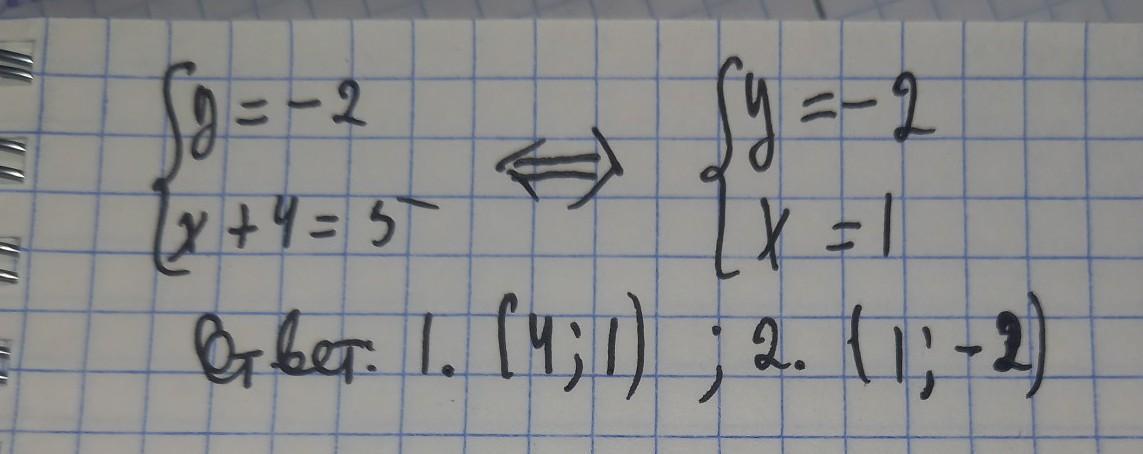 { y = -2 ⟺ { y = -2
x + 4 = 5 x = 1
Ответ: 1. (4; 1) ; 2. (1; -2)